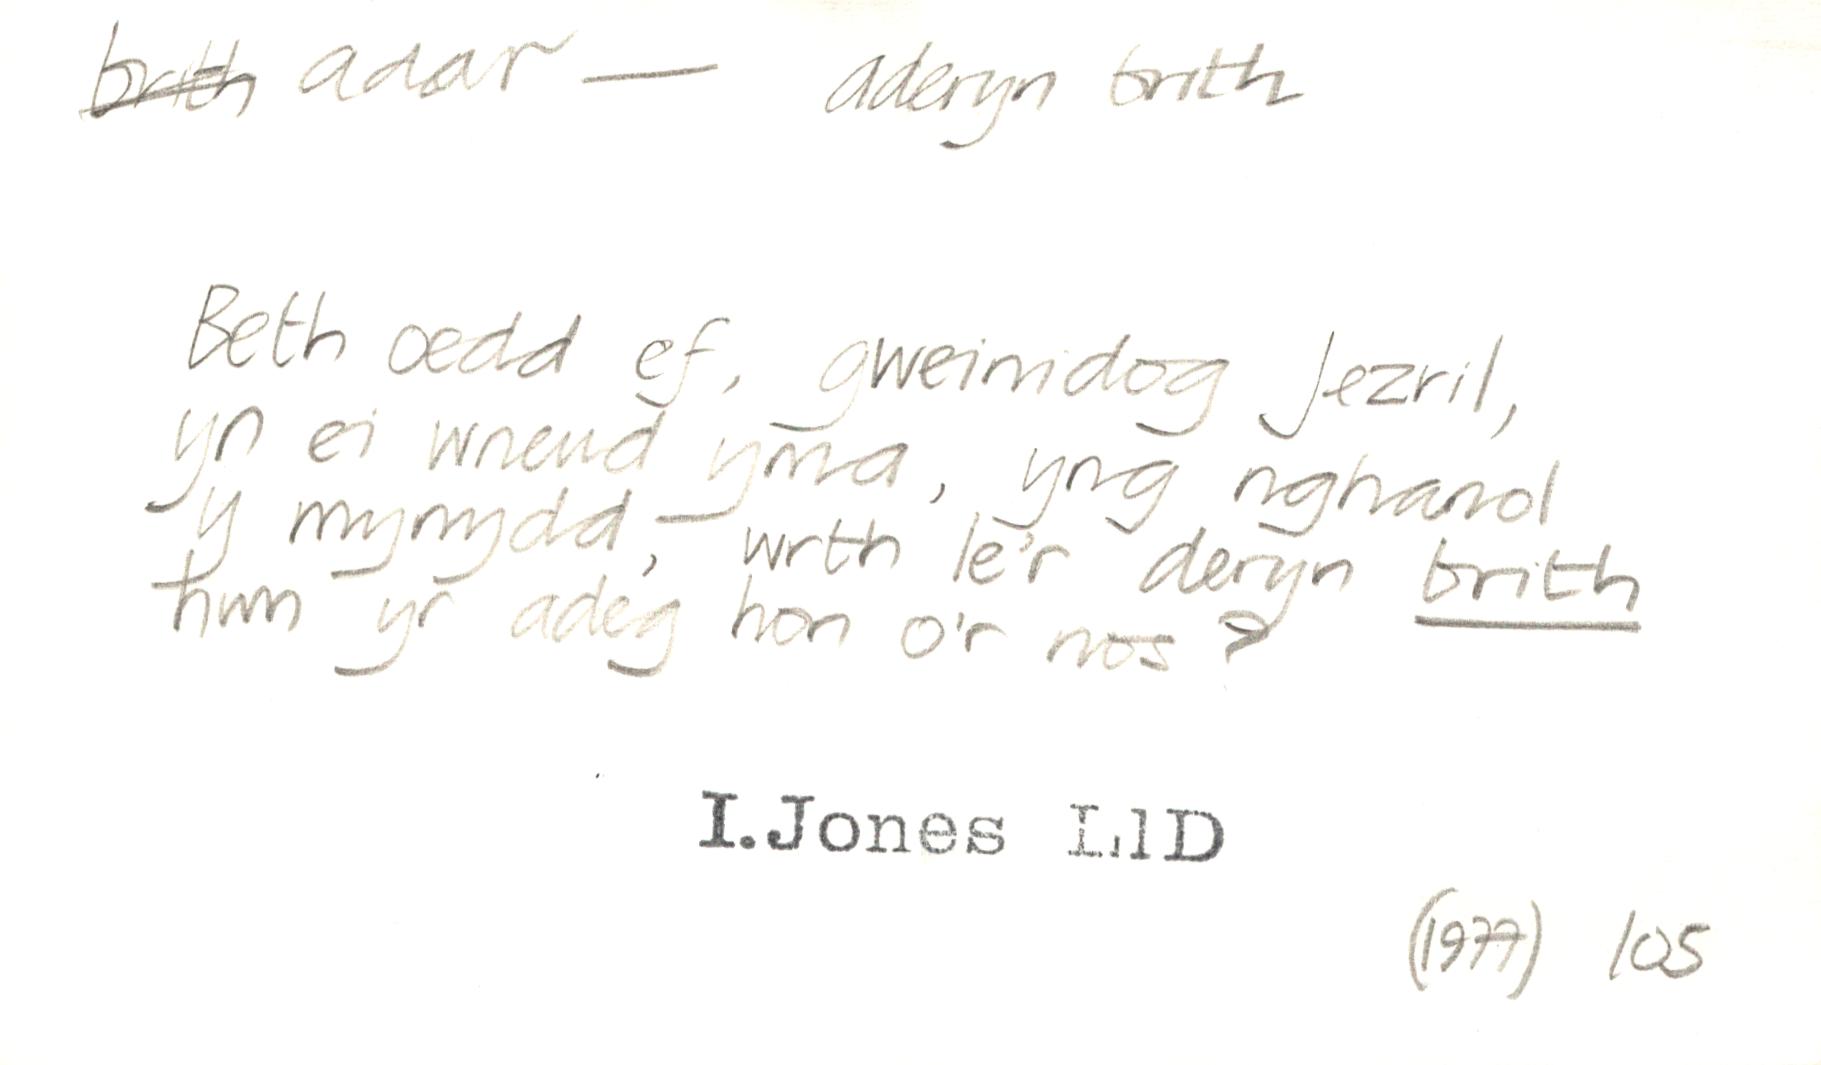 brith adar — aderyn brith
Beth oedd ef, gweinidog Jezril,
yn ei wneud yma, yng nghanol
y mynydd, – wrth le'r deryn brith
hwn yr adeg hon o'r nos?
I.Jones LlD
(1977) 105